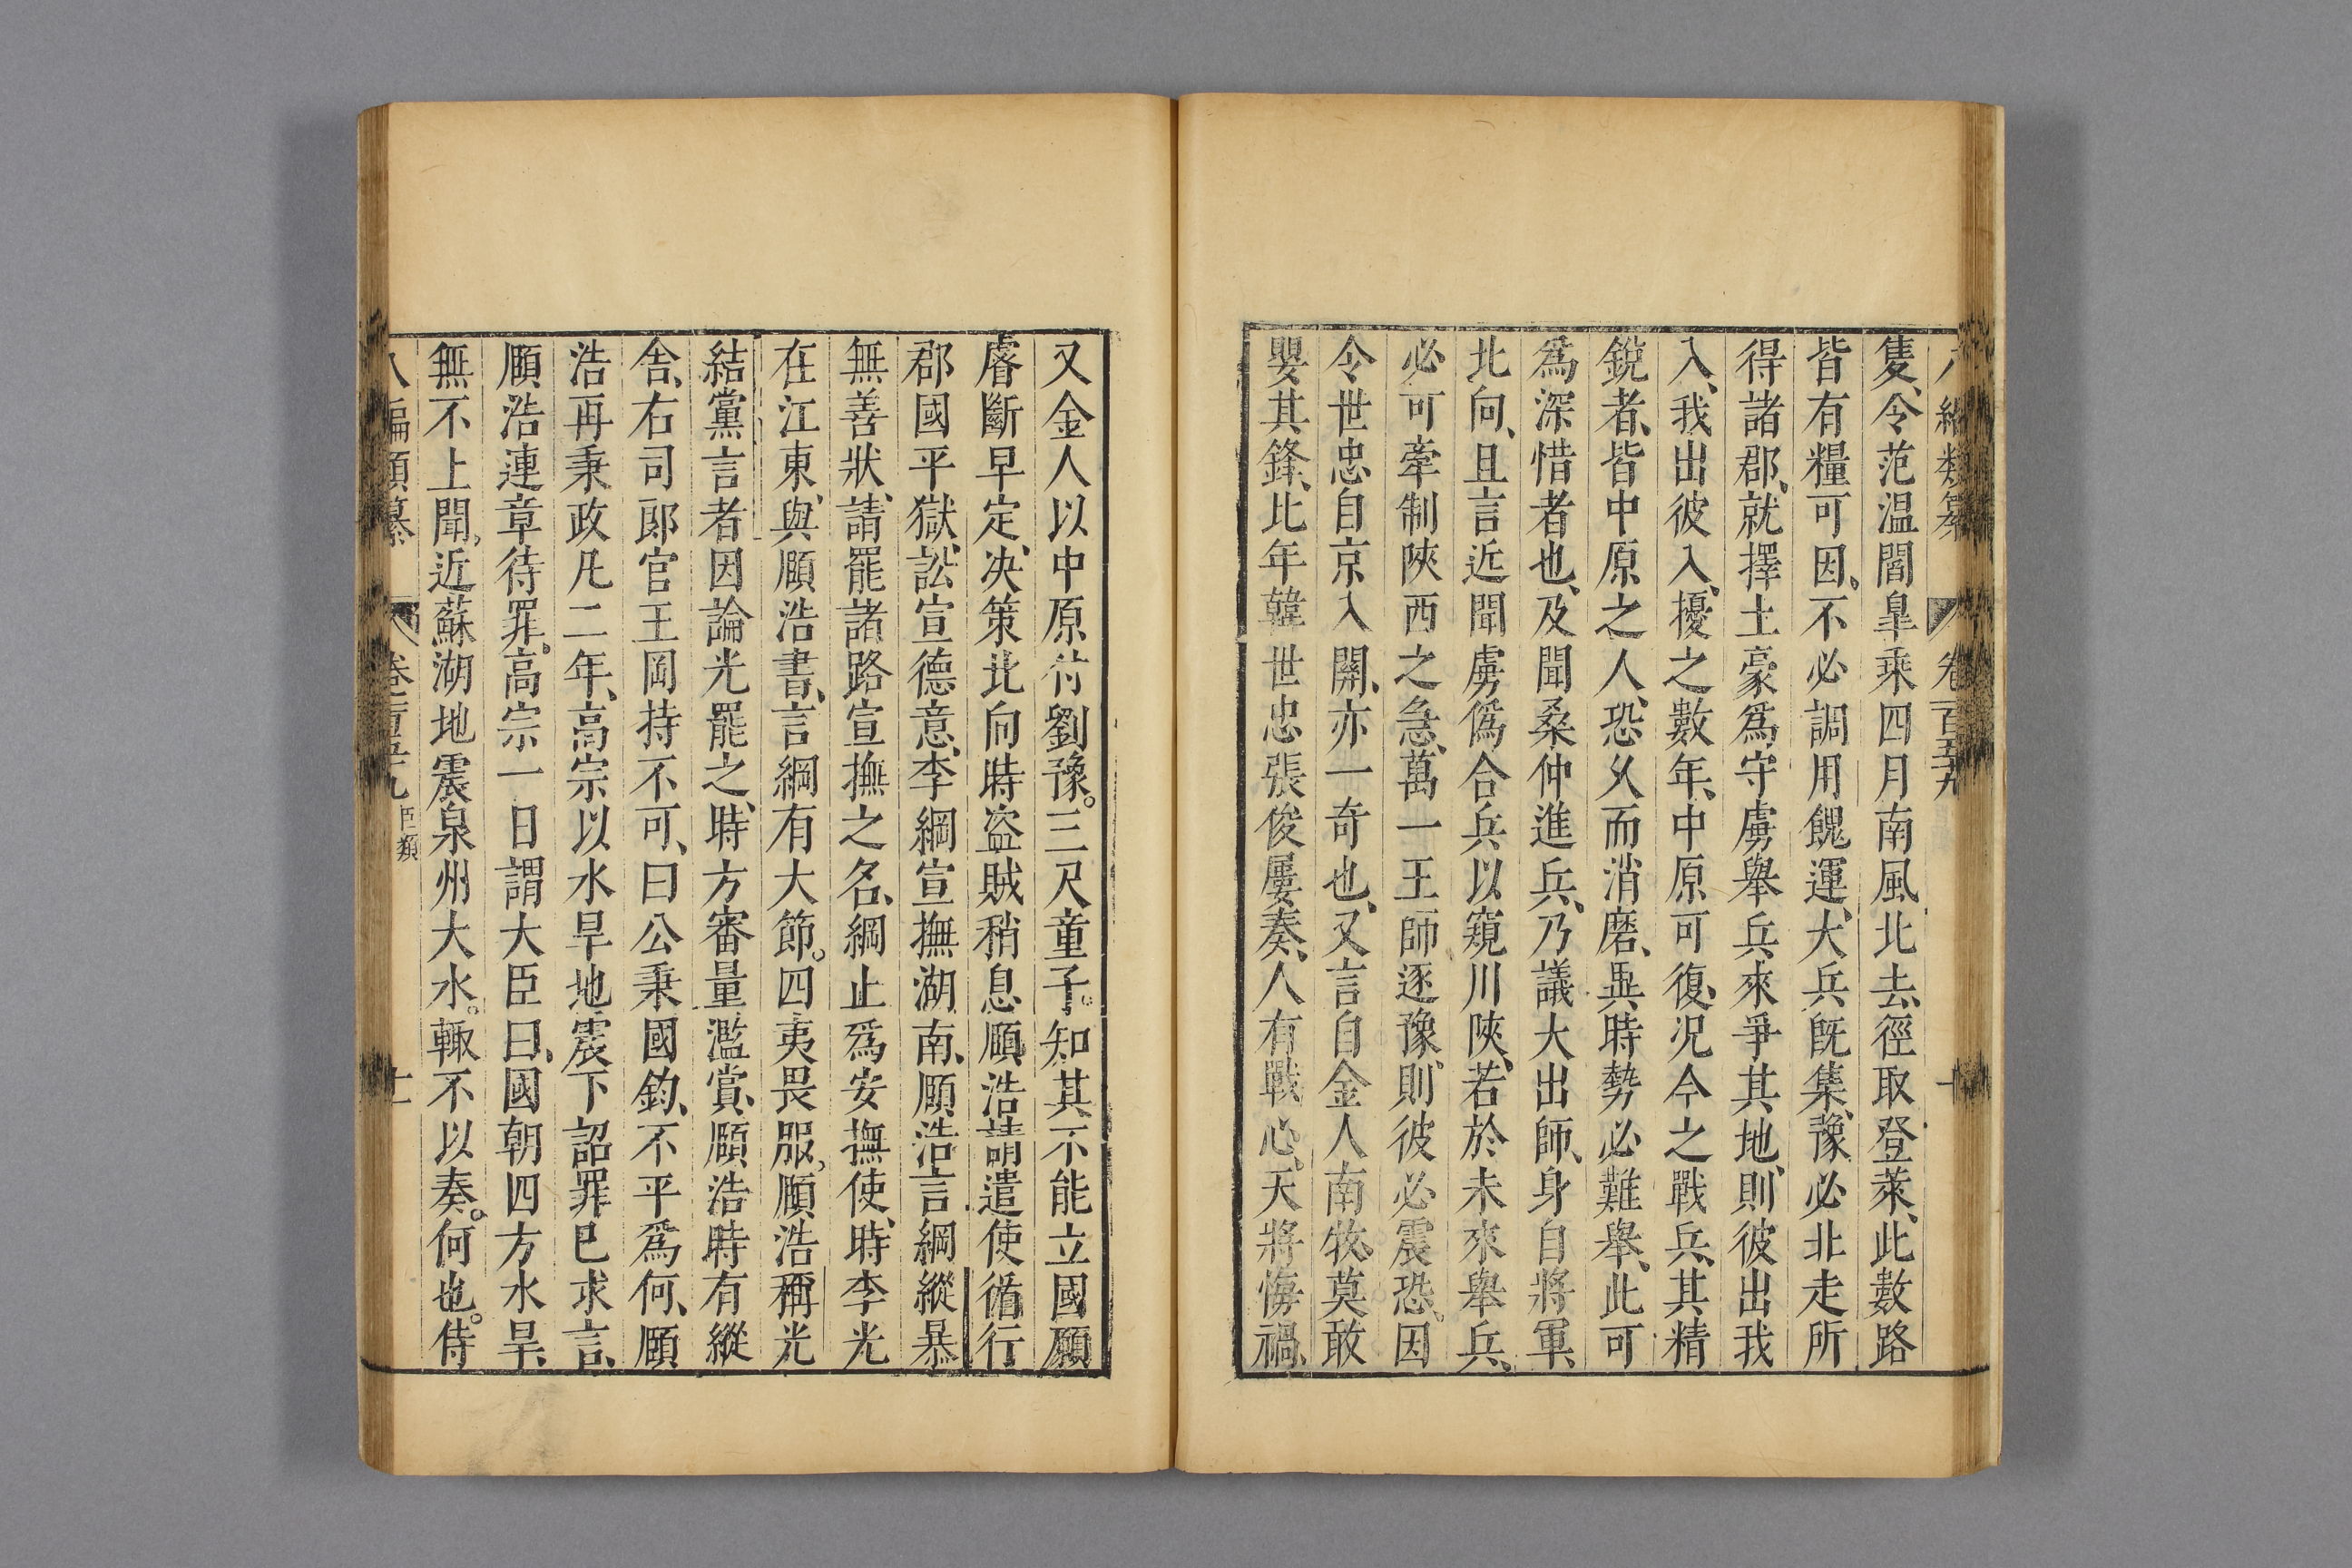 八編類纂 卷一百五十九 十
隻、令范温閻臯乘四月南風北去、徑取登萊、此數路
皆有糧可因。不必調用餽運、大兵旣集、豫必北走所
得諸郡、就擇土豪爲守虜舉兵來爭其地、則彼出我
入、我出彼入、擾之數年、中原可復、况今之戰兵、其精
銳者、皆中原之人、恐久而消磨、異時勢必難舉、此可
爲深惜者也、及聞桑仲進兵、乃議大出師、身自將軍、
北向、且言近聞虜僞合兵以窺川陝、若於未來舉兵、
必可牽制陝西之急、萬一王師逐豫。則彼必震恐。因
令世忠自京入關、亦一奇也、又言自金人南牧、莫敢
嬰其鋒、比年韓世忠張俊屢奏、人有戰心。天將悔禍、
又金人以中原付劉豫。三尺童子。知其不能立國願
睿斷早定、决策北向時盗賊稍息頤浩請遣使循行
郡國平獄、訟宣德意、李綱宣撫湖南、頤浩言綱縱暴
無善狀、請罷諸路宣撫之名、綱止爲安撫使、時李光
在江東、與頤浩書、言綱有大節。四夷畏服、頤浩稱光
結黨言者因論光罷之、時方審量濫賞、頤浩時有縱
舍、右司郎官王岡持不可、曰公秉國鈞、不平爲何、頤
浩再秉政凡二年、高宗以水旱地震下詔罪已求言、
頤浩連章待罪。高宗一日謂大臣曰、國朝四方水旱、
無不上聞、近蘇湖地震泉州大水。輙不以奏。何也。侍
八編類纂 卷一百五十九 臣類 十一